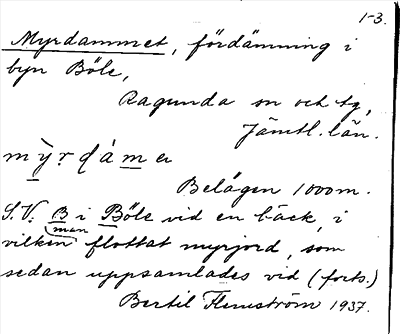 1-3.
Myrdammet, fördämning i
byn Böle,
Ragunda sn och tg,
Jämtl. län.
Belägen 1000 m.
S.V. B i Böle vid en bäck, i
vilken man flottat myrjord, som
sedan uppsamlades vid (forts.)
Bertil Flemström 1937.